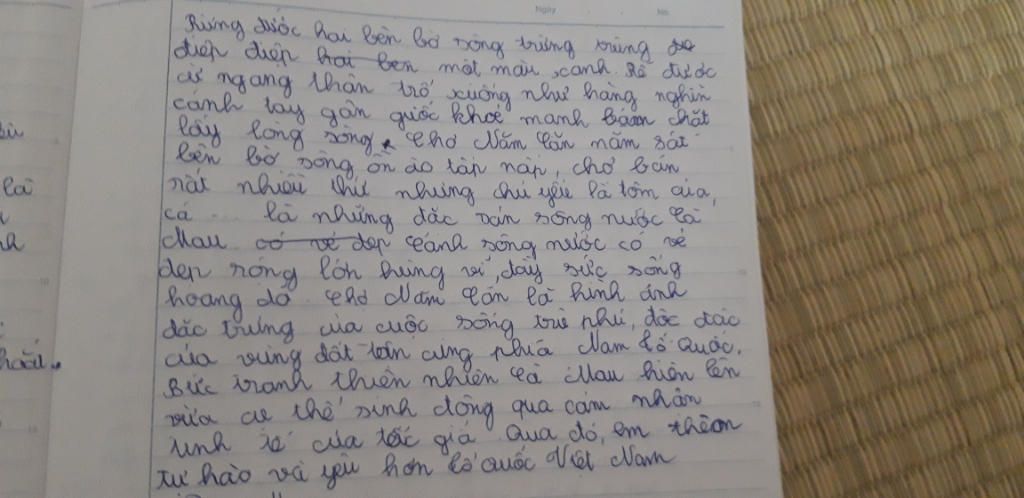 Ngày No.
Rừng đước hai bên bờ sông trùng trùng
điệp điệp hai bên một màu xanh. Rễ đước
từ ngang thân trổ xuống như hàng nghìn
cánh tay gân guốc khoẻ mạnh bám chặt
lấy lòng sông. Chợ Năm Căn nằm sát
bên bờ sông ồn ào tập nập, chợ bán
rất nhiều thứ nhưng chủ yếu là tôm cua,
cá ... là những đặc sản sông nước Cà
Mau có vẻ đẹp Cảnh sông nước có vẻ
đẹp rộng lớn hùng vĩ, đầy sức sống
hoang dã. Chợ Năm Căn là hình ảnh
đặc trưng của cuộc sống trù phú, độc đáo
của vùng đất tận cùng phía Nam tổ quốc.
Bức tranh thiên nhiên Cà Mau hiện lên
vừa cụ thể sinh động qua cảm nhận
tinh tế của tác giả. Qua đó, em thêm
tự hào và yêu hơn tổ quốc Việt Nam